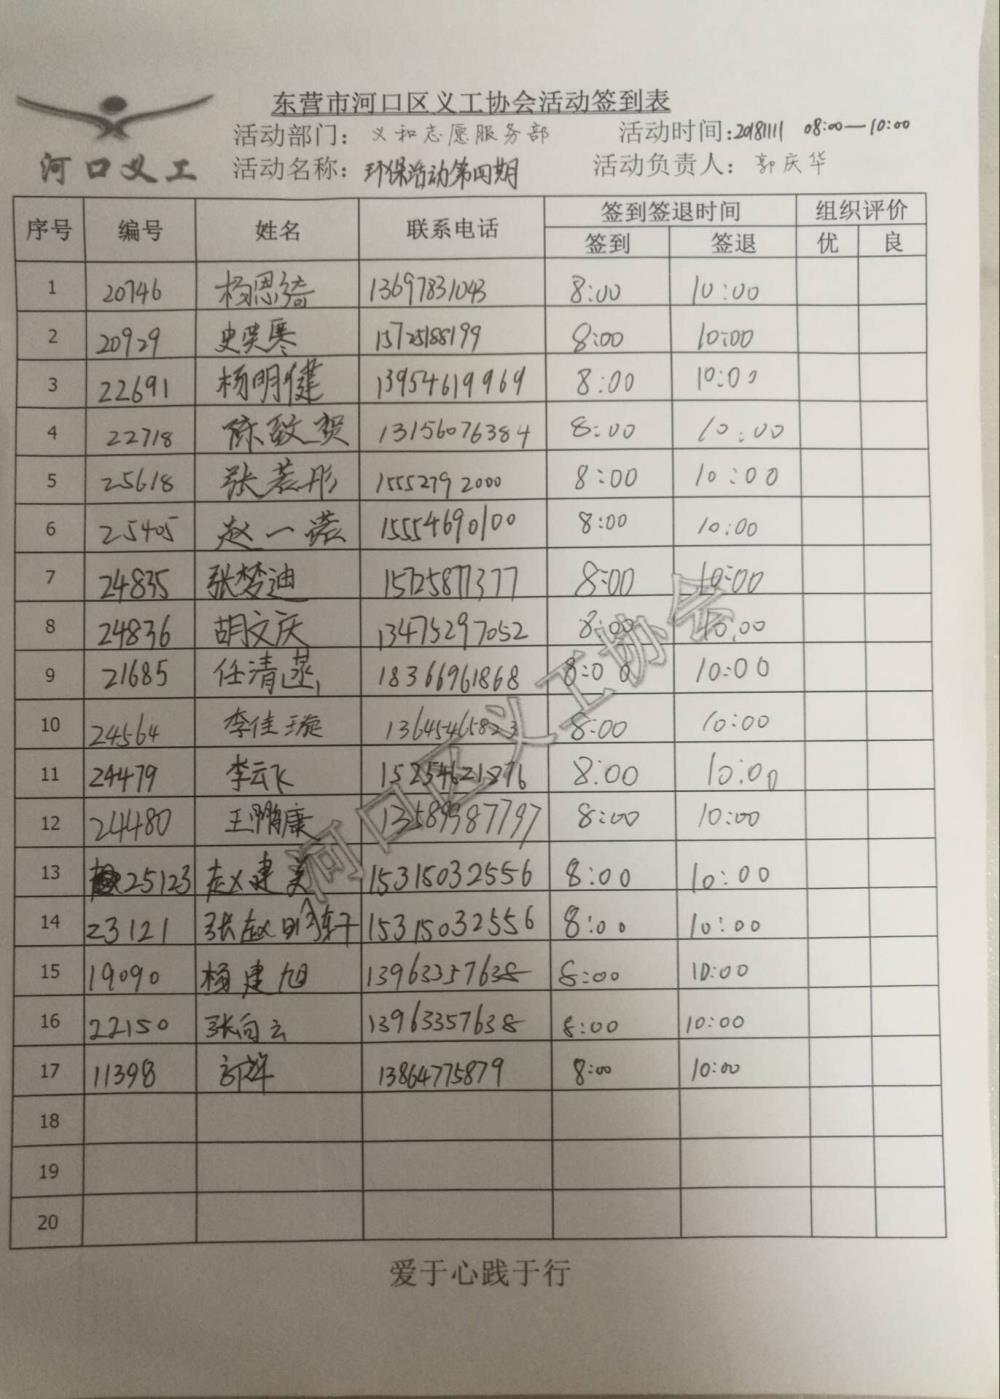 东营市河口区义工协会活动签到表
活动部门：义和志愿服务部 活动时间：20181111 08:00—10:00
河口义工 活动名称：环保活动第四期 活动负责人：郭庆华
序号 编号 姓名 联系电话 签到签退时间 组织评价
签到 签退 优 良
1 20746 杨恩绮 13697831043 8:00 10:00
2 20929 史奕寒 15725188199 8:00 10:00
3 22691 杨明健 13954619969 8:00 10:00
4 22718 陈致贺 13156076384 8:00 10:00
5 25618 张若彤 15552792000 8:00 10:00
6 25405 赵一诺 15554690100 8:00 10:00
7 24835 张梦迪 15725877377 8:00 10:00
8 24836 胡文庆 13475297052 8:00 10:00
9 21685 任清 18366961868 8:00 10:00
10 24564 李佳璇 13645465823 8:00 10:00
11 24479 李云飞 15254621876 8:00 10:00
12 24480 王鹏康 13589987797 8:00 10:00
13 25123 赵建美 15315032556 8:00 10:00
14 23121 张赵明轩 15315032556 8:00 10:00
15 19090 杨建旭 13963357638 8:00 10:00
16 22150 张向云 13963357638 8:00 10:00
17 11398 13864775879 8:00 10:00
18
19
20
河口区义工协会
爱于心践于行